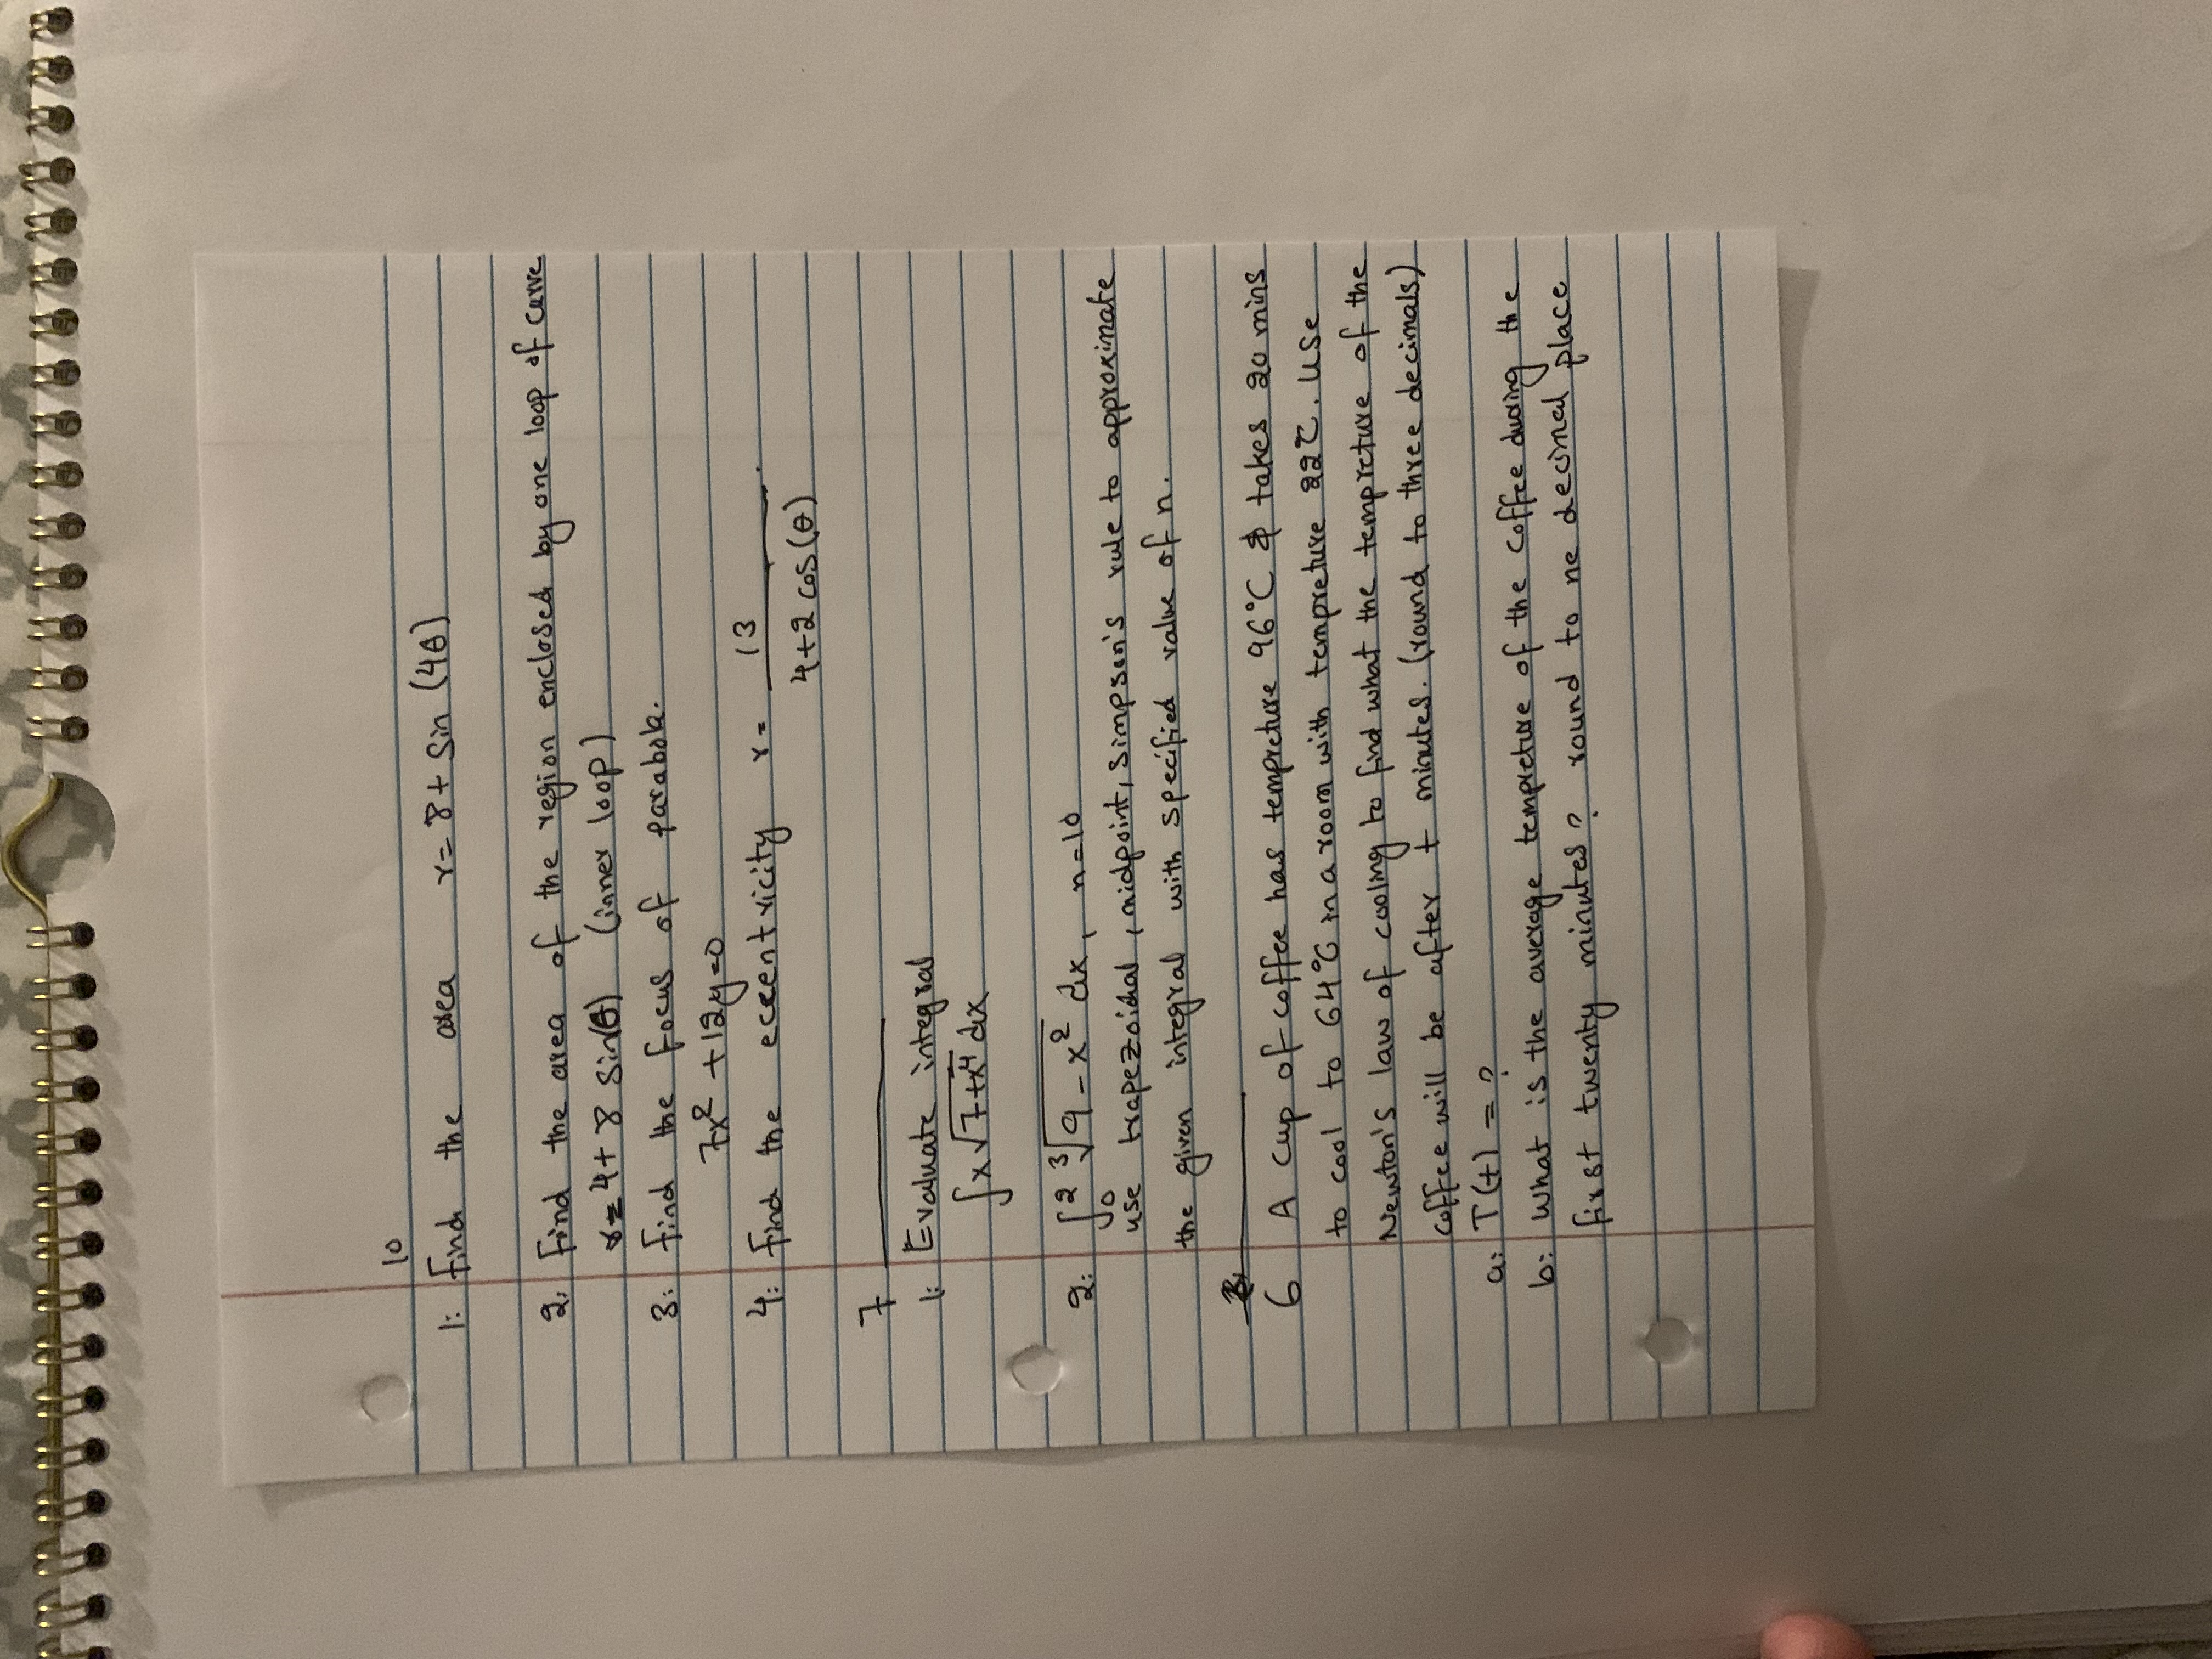 10
1: Find the area r=8+Sin(4θ)
2, Find the area of the region enclosed by one loop of curve
r=4+8 Sin(θ) (inner loop)
3: find the focus of parabola.
7x²+12y=0
4: find the eccentricity r= 13 / 4+2 cos(θ)
7
1: Evaluate integral
∫x√7+x⁴ dx
2: ∫₀² ³√9-x² dx, n=10
use trapezoidal, midpoint, simpson's rule to approximate
the given integral with specified value of n.
6 A cup of coffee has tempreture 96°C takes 20 mins
to cool to 64°C in a room with tempreture 22°C. use
Newton's law of cooling to find what the tempreture of the
coffee will be after t minutes. (round to three decimals)
a: T(t) = ?
b: what is the average tempreture of the coffee during the
first twenty minutes? round to ne decimal place